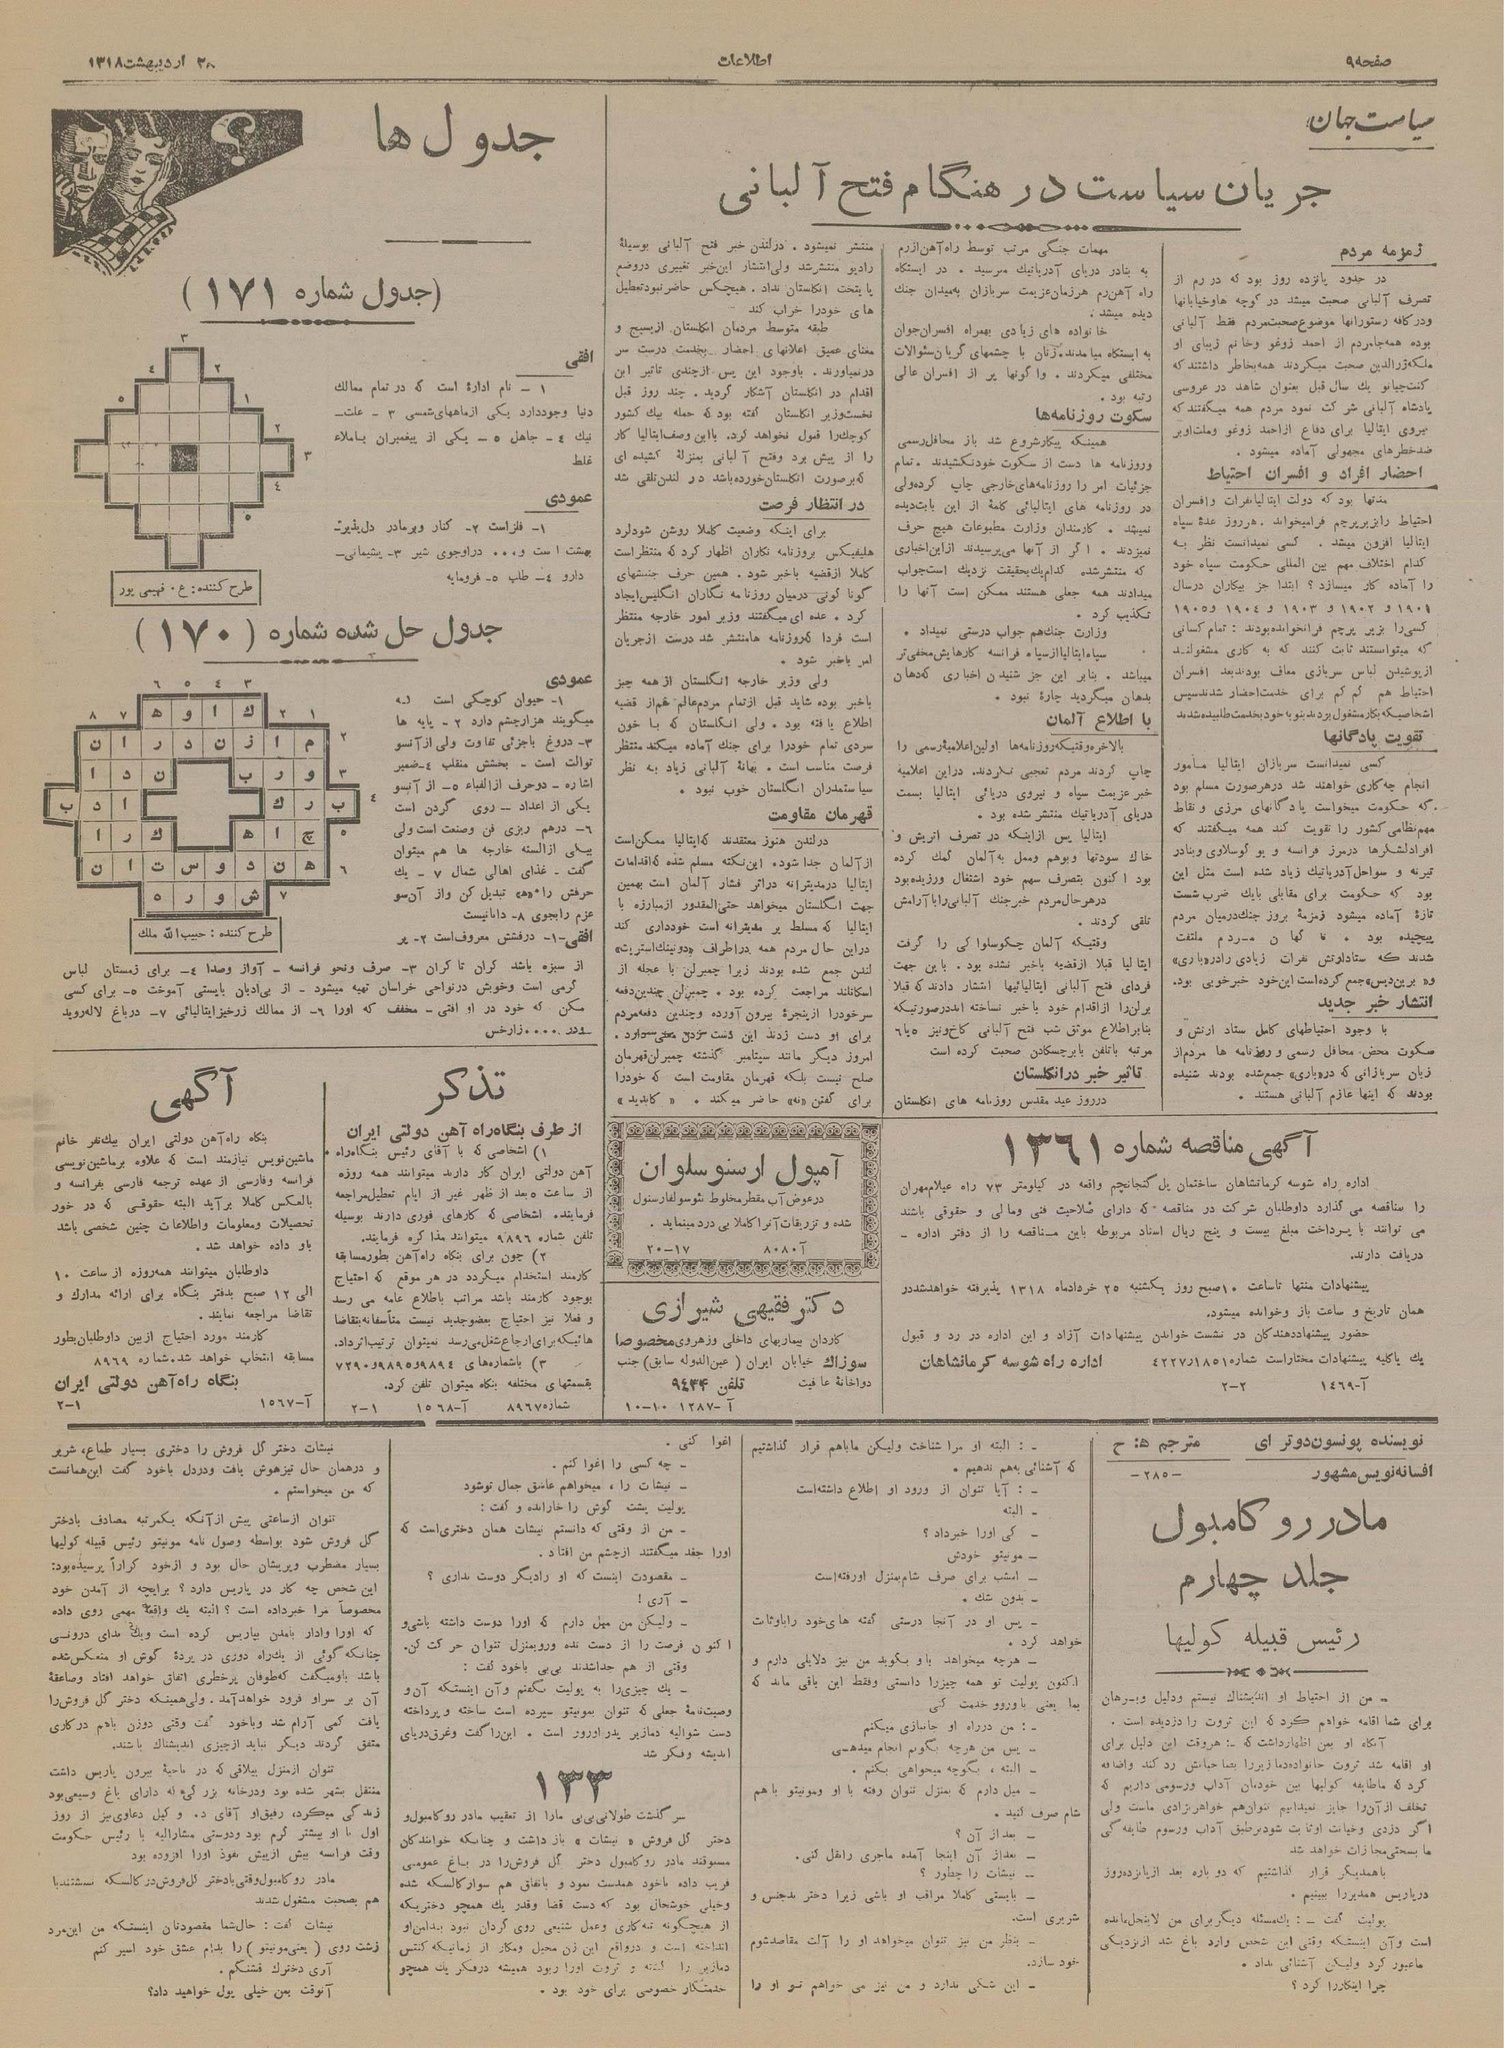 صفحه۹
اطلاعات
۲۸ اردیبهشت۱۳۱۸
سیاست جهان
جریان سیاست در هنگام فتح آلبانی
زمزمه مردم
در حدود پانزده روز بود که در رم از
تصرف آلبانی صحبت میشد در کوچه هاوخیابانها
ودرکافه رستورانها موضوع صحبت مردم فقط آلبانی
بوده همه‌جامردم از احمد زوغو وخانم زیبای او
ملکه‌ژرالدین صحبت میکردند همه‌بخاطر داشتند که
کنت‌چیانو یك سال قبل بعنوان شاهد در عروسی
پادشاه آلبانی شرکت نمود مردم همه میگفتند که
نیروی ایتالیا برای دفاع ازاحمد زوغو وملت‌اوبر
ضدخطرهای مجهولی آماده میشود .
احضار افراد و افسران احتیاط
مدتها بود که دولت ایتالیانفرات وافسران
احتیاط رابزیرپرچم فرامیخواند . هرروز عدهٔ سپاه
ایتالیا افزون میشد . کسی نمیدانست نظر به
کدام اختلاف مهم بین المللی حکومت سپاه خود
را آماده کار میسازد ؟ ابتدا جز بیکاران درسال
۱۹۰۱ و ۱۹۰۲ و ۱۹۰۳ و ۱۹۰۴ و۱۹۰۵
کسی‌را بزیر پرچم فرانخوانده‌بودند : تمام کسانی
که میتوانستند ثابت کنند که به کاری مشغولند
ازپوشیدن لباس سربازی معاف بودندبعد افسران
احتیاط هم کم کم برای خدمت‌احضار شدندسپس
اشخاصیکه بکارمشغول بودند بنوبه خود بخدمت طلبیده شدند
تقویت پادگانها
کسی نمیدانست سربازان ایتالیا مأمور
انجام چه‌کاری خواهند شد درهرصورت مسلم بود
که حکومت میخواست پادگانهای مرزی و نقاط
مهم‌نظامی کشور را تقویت کند همه میگفتند که
افرادلشگرها درمرز فرانسه و یوگوسلاوی وبنادر
تیرنه و سواحل آدریاتیك زیاد شده است مثل این
بود که حکومت برای مقابلی بایك ضرب شست
تازهٔ آماده میشود زمزمهٔ بروز جنك‌درمیان مردم
پیچیده بود . ناگهان مردم ملتفت
شدند که ستادارتش نفرات زیادی رادر«باری»
و« برین‌دیس»جمع کرده‌است این‌خود خبرخوبی بود.
انتشار خبر جدید
با وجود احتیاطهای کامل ستاد ارتش و
سکوت محض محافل رسمی و روزنامه ها مردم‌از
زبان سربازانی که در«باری» جمع‌شده بودند شنیده
بودند که اینها عازم آلبانی هستند .
مهمات جنگی مرتب توسط راه‌آهن‌ازرم
به بنادر دریای آدریاتیك میرسید . در ایستگاه
راه آهن‌رم هرزمان‌عزیمت سربازان به‌میدان جنك
دیده میشد .
خانواده های زیادی بهمراه افسران‌جوان
به ایستگاه میامدند. زنان با چشمهای گریان‌سئوالات
مختلفی میکردند . واگونها پر از افسران عالی
رتبه بود .
سکوت روزنامه‌ها
همینکه پیکارشروع شد باز محافل‌رسمی
وروزنامه ها دست از سکوت خودنکشیدند . تمام
جزئیات امر را روزنامه‌های‌خارجی چاپ کرده‌ولی
در روزنامه های ایتالیائی کلمهٔ از این بابت‌دیده
نمیشد . کارمندان وزارت مطبوعات هیچ حرف
نمیزدند . اگر از آنها می‌پرسیدند ازاین‌اخباری
که منتشرشده کدام‌یك‌بحقیقت نزدیك است‌جواب
میدادند همه جعلی هستند ممکن است آنها را
تکذیب کرد .
وزارت جنك‌هم جواب درستی نمیداد .
سپاه‌ایتالیاازسپاه فرانسه کارهایش‌مخفی‌تر
میباشد . بنابر این جز شنیدن اخباری که‌دهان
بدهان میگردید چارهٔ نبود .
با اطلاع آلمان
بالاخره‌وقتیکه‌روزنامه‌ها اولین‌اعلامیهٔ‌رسمی را
چاپ کردند مردم تعجبی نکردند. دراین اعلامیه
خبر عزیمت سپاه و نیروی دریائی ایتالیا بسمت
دریای آدریاتیك منتشر شده بود .
ایتالیا پس ازاینکه در تصرف اتریش و
خاك سودتها وبوهم وممل به‌آلمان کمك کرده
بود اکنون بتصرف سهم خود اشتغال ورزیده‌بود
درهرحال‌مردم خبرجنك آلبانی‌رابا‌آرامش
تلقی کردند .
وقتیکه آلمان چکوسلواکی را گرفت
ایتالیا قبلا ازقضیه باخبر نشده بود . باین جهت
فردای فتح آلبانی ایتالیائیها انتشار دادند که‌قبلا
برلن‌را ازاقدام خود باخبر نساخته انددرصورتیکه
بنابراطلاع موثق شب فتح آلبانی کاخ‌ونیز ۵یا۶
مرتبه باتلفن بابرچسکادن صحبت کرده است
تأثیر خبر درانگلستان
درروز عید مقدس روزنامه های انگلستان
منتشر نمیشود . درلندن خبر فتح آلبانی بوسیلهٔ
رادیو منتشرشد ولی‌انتشار این‌خبر تغییری دروضع
پایتخت انگلستان نداد . هیچکس حاضر نبودتعطیل
های خودرا خراب کند
طبقه متوسط مردمان انگلستان ازبسیج و
معنای عمیق اعلانهای احضار بخدمت درست سر
درنمیاورند. باوجود این پس ازچندی تاثیر این
اقدام در انگلستان آشکار گردید. چند روز قبل
نخست‌وزیر انگلستان گفته بود که حمله بیك کشور
کوچك‌را قبول نخواهد کرد. بااین وصف‌ایتالیا کار
را از پیش برد وفتح آلبانی بمنزلهٔ کشیده ای
که‌برصورت انگلستان‌خورده‌باشد در لندن‌تلقی شد
در انتظار فرصت
برای اینکه وضعیت کاملا روشن شودلرد
هلیفیکس بروزنامه نگاران اظهار کرد که منتظر‌است
کاملا ازقضیه باخبر شود . همین حرف جنبشهای
گوناگونی درمیان روزنامه نگاران انگلیس‌ایجاد
کرد . عده ای‌میگفتند وزیر امور خارجه منتظر
است فردا که‌روزنامه هامنتشر شد درست ازجریان
امر باخبر شود .
ولی وزیر خارجه انگلستان از همه چیز
باخبر بوده شاید قبل ازتمام مردم‌عالم هم‌از قضیه
اطلاع یافته بود . ولی انگلستان که با خون
سردی تمام خودرا برای جنك آماده میکند منتظر
فرصت مناسب است . بهانهٔ آلبانی زیاد به نظر
سیاستمدران انگلستان خوب نبود .
قهرمان مقاومت
درلندن هنوز معتقدند که‌ایتالیا ممکن‌است
ازآلمان جدا شود. این‌نکته مسلم شده که‌اقدامات
ایتالیا درمدیترانه دراثر فشار آلمان است بهمین
جهت انگلستان میخواهد حتی‌المقدور ازمبارزه با
ایتالیا که‌مسلط بر مدیترانه است خودداری کند
دراین حال مردم همه دراطراف «دونینك‌استریت»
لندن جمع شده بودند زیرا چمبرلن با عجله از
اسکاتلند مراجعت کرده بود . چمبرلن چندین‌دفعه
سرخودرا ازپنجرهٔ بیرون آورده وچندین دفعه‌مردم
برای او دست زدند این دست زدن معنی دارد .
امروز دیگر مانند سپتامبر گذشته چمبرلن‌قهرمان
صلح نیست بلکه قهرمان مقاومت است که خودرا
برای گفتن «نه» حاضر میکند . « کاندید »
جدول ها
(جدول شماره ۱۷۱)
افقی
۱ - نام ادارهٔ است که در تمام ممالك
دنیا وجوددارد یکی ازماههای‌شمسی ۳ - علت-
نیك ۴- جاهل ۵- یکی از پیغمبران باملاء
غلط
عمودی
۱- فلزاست ۲- کنار وبرمادر دل‌پذیرت
بهشت است و... دراوجوی شیر ۳- پشیمانی-
دارو ۴- طلب ۵- فرومایه
طرح کننده : ع . فهیمی پور
جدول حل شده شماره (۱۷۰)
عمودی
۱- حیوان کوچکی است که
میگویند هزارچشم دارد ۲ - پایه ها
۳- دروغ باجزئی تفاوت ولی ازآنسو
توالت است - بخشش منقلب ۴-ضمیر
اشاره - دوحرف ازالفباء ۵- از آنسو
یکی از اعداد - روی گردن است
۶- درهم ریزی فن وصنعت است‌ولی
بیکی ازالسنه خارجه ها هم میتوان
گفت - غذای اهالی شمال ۷ - یك
حرفش را «ه» تبدیل کن واز آن‌سو
عزم رابجوی ۸- دانانیست
افقی-۱- درفشش معروف‌است ۲- پر
از سبزه باشد کران تا کران ۳- صرف ونحو فرانسه - آواز وصدا ۴- برای زمستان لباس
گرمی است وخوبش درنواحی خراسان تهیه میشود - از بی‌ادبان بایستی آموخت ۵- برای کسی
مکن که خود در او افتی - مخفف که اورا ۶- از ممالك زرخیزایتالیائی ۷- درباغ لاله‌روید
ودر .....زارخس
طرح کننده : حبیب‌الله ملك
ك ا و ه
م ا ز ن د ر ا ن
و ر ب ن د ا
ب ر ك ا د ب
چ ا ه ك ر ا
ه ن د و س ت ا ن
ش و ر ه
تذکر
از طرف بنگاه راه آهن دولتی ایران
۱) اشخاصی که با آقای رئیس بنگاه‌راه
آهن دولتی ایران کار دارند میتوانند همه روزه
از ساعت ۵ بعد از ظهر غیر از ایام تعطیل‌مراجعه
فرمایند. اشخاصی که کارهای فوری دارند بوسیله
تلفن شماره ۹۸۹۶ میتوانند مذاکره فرمایند.
۲) چون برای بنگاه راه‌آهن بطورمسابقه
کارمند استخدام میگردد در هر موقع که احتیاج
بوجود کارمند باشد مراتب باطلاع عامه می رسد
و فعلا نیز احتیاج بعضوجدید نیست متأسفانه‌بتقاضا
هائیکه‌برای‌ارجاع‌شغل‌می‌رسد نمیتوان ترتیب‌اثرداد.
۳) باشماره‌های ۹۸۹۴و۹۸۹۵و۷۲۹۰
بقسمتهای مختلفه بنگاه میتوان تلفن کرد.
شماره۸۹۶۷ آ-۱۵۶۸ ۲-۱
آگهی
بنگاه راه‌آهن دولتی ایران بیك‌نفر خانم
ماشین‌نویس نیازمند است که علاوه برماشین‌نویسی
فرانسه وفارسی از عهده ترجمه فارسی بفرانسه و
بالعکس کاملا برآید البته حقوقی که در خور
تحصیلات ومعلومات واطلاعات چنین شخصی باشد
باو داده خواهد شد .
داوطلبان میتوانند همه‌روزه از ساعت ۱۰
الی ۱۲ صبح بدفتر بنگاه برای ارائه مدارك و
تقاضا مراجعه نمایند.
کارمند مورد احتیاج ازبین داوطلبان‌بطور
مسابقه انتخاب خواهد شد. شماره ۸۹۶۹
بنگاه راه‌آهن دولتی ایران
آ-۱۵۶۷ ۲-۱
آمپول ارسنوسلوان
درعوض آب مقطر مخلوط نئوسولفارسنول
شده و تزریقات آنرا کاملا بی درد مینماید .
آ۸۰۸۰ ۲۰-۱۷
دکتر فقیهی شیرازی
کاردان بیماریهای داخلی وزهروی مخصوصا
سوزاك خیابان ایران ( عین‌الدوله سابق) جنب
دواخانهٔ عافیت تلفن ۹۴۳۴
آ-۱۲۸۷ ۱۰-۱۰
آگهی مناقصه شماره ۱۳۶۱
اداره راه شوسه کرمانشاهان ساختمان پل گنجانچم واقعه در کیلومتر ۷۳ راه عیلام‌مهران
را مناقصه می گذارد داوطلبان شرکت در مناقصه که دارای صلاحیت فنی ومالی و حقوقی باشند
می توانند با پرداخت مبلغ بیست و پنج ریال اسناد مربوطه باین مناقصه را از دفتر اداره -
دریافت دارند.
پیشنهادات منتها تاساعت ۱۰صبح روز یکشنبه ۲۵ خردادماه ۱۳۱۸ پذیرفته خواهدشددر
همان تاریخ و ساعت باز وخوانده میشود.
حضور پیشنهاددهندکان در نشست خواندن پیشنهادات آزاد و این اداره در رد و قبول
یك یاکلیه پیشنهادات مختاراست شماره۴۲۲۷٫۱۸۵۱ اداره راه شوسه کرمانشاهان
آ-۱۴۶۹ ۲-۲
نویسنده پونسون‌دوترای مترجم ه: ح
افسانه‌نویس مشهور -۲۸۵-
مادر روکامبول
جلد چهارم
رئیس قبیله کولیها
- من از احتیاط او اندیشناك نیستم ودلیل وبرهان
برای شما اقامه خواهم کرد که این ثروت را دزدیده است .
آنگاه او بمن اظهارداشت که -: هروقت این دلیل برای
او اقامه شد ثروت خانواده‌دمازیررا بصاحبانش رد کند واضافه
کرد که ماطایفه کولیها بین خودمان آداب ورسومی داریم که
تخلف ازآن‌را جایز نمیدانیم تنوان‌هم خواهرنژادی ماست ولی
اگر دزدی وخیانت اوثابت شودبرطبق آداب ورسوم طایفه‌گی
ما بسختی‌مجازات خواهد شد
باهمدیگر قرار گذاشتیم که دوباره بعد ازپانزده‌روز
درپاریس همدیررا ببینیم .
یولیت گفت -: یك‌مسئله دیگربرای من لاینحل‌مانده
است وآن اینستکه وقتی این شخص وارد باغ شد ازنزدیکی
ماعبور کرد ولیکن آشنائی نداد .
چرا اینکاررا کرد ؟
- : البته او مرا شناخت ولیکن مابا‌هم قرار گذاشتیم
که آشنائی به‌هم ندهیم .
- : آیا تنوان از ورود او اطلاع داشته‌است
- البته
- کی اورا خبرداد ؟
- مونیتو خودش
- امشب برای صرف شام‌بمنزل اورفته‌است
- بدون شك .
- پس او در آنجا درستی گفته های‌خود راباوثبات
خواهد کرد .
- هرچه میخواهد باو بگوید من نیز دلایلی دارم و
اکنون یولیت تو همه چیزرا دانستی وفقط این باقی ماند که
بما یعنی باوررو خدمت کنی
- : من درراه او جانبازی میکنم
- پس من هرچه بگویم انجام میدهی
- البته ، بگوچه میخواهی بکنم .
- میل دارم که بمنزل تنوان رفته با او ومونیتو با هم
شام صرف کنید .
- بعد از آن ؟
- بعداز آن اینجا آمده ماجری رانقل کنی.
- نیشات را چطور ؟
- بایستی کاملا مراقب او باشی زیرا دختر بدجنس و
شریری است.
- بنظر من نیز تنوان میخواهد او را آلت مقاصدشوم
خود سازد.
- این شکی ندارد و من نیز می خواهم تو او را
اغوا کنی .
- چه کسی را اغوا کنم .
- نیشات را ، میخواهم عاشق جمال توشود
یولیت پشت گوش را خارانده و گفت :
- من از وقتی که دانستم نیشات همان دختری‌است که
اورا جغد میگفتند ازچشم من افتاد .
- مقصودت اینست که او رادیگر دوست نداری ؟
- آری !
- ولیکن من میل دارم که اورا دوست داشته باشی‌و
اکنون فرصت را از دست نده وروبمنزل تنوان حرکت کن.
وقتی از هم جداشدند بی‌بی باخود گفت :
- یك چیزی‌را به یولیت نگفتم وآن اینستکه آن‌و
وصیت‌نامهٔ جعلی که تنوان بمونیتو سپرده است ساخته و پرداخته
دست شوالیه دمازیر پدراورور است . این‌راگفت وغرق‌دریای
اندیشه وفکر شد
۱۳۳
سر گذشت طولانی‌بی‌بی مارا از تعقیب مادر روکامبول‌و
دختر گل فروش « نیشات » بازداشت و چنانکه خوانندگان
مسبوقند مادر روکامبول دختر گل فروش‌را در باغ عمومی
فریب داده باخود همدست نمود و باتفاق هم سوارکالسکه شده
وخیلی خوشحال بود که دست قضا وقدر یك همچو دختریکه
از هیچگونه تبه‌کاری وعمل شنیعی روی گردان نبود بدامن‌او
انداخته است و درواقع این زن محیل ومکار از زمانیکه کنتس
دمازیر را کشته و ثروت اورا ربود همیشه درفکر یك همچو
خدمتکار خصوصی برای خود بود .
نیشات دختر گل فروش را دختری بسیار طماع، شریر
و درهمان حال تیزهوش یافت ودردل باخود گفت این‌همانست
که من میخواستم .
تنوان ازساعتی پیش ازآنکه یکمرتبه مصادف بادختر
گل فروش شود بواسطه وصول نامه مونیتو رئیس قبیله کولیها
بسیار مضطرب وپریشان حال بود و ازخود کراراً پرسیده‌بود:
این شخص چه کار در پاریس دارد ؟ برایچه از آمدن خود
مخصوصاً مرا خبرداده است ؟ البته یك واقعهٔ مهمی روی داده
که اورا وادار بامدن بپاریس کرده است ویك صدای درونی
چنانکه گوئی از یك‌راه دوری در پردهٔ گوش او منعکس‌شده
باشد باومیگفت که‌طوفان پرخطری اتفاق خواهد افتاد وصاعقهٔ
آن بر سراو فرود خواهدآمد . ولی‌همینکه دختر گل فروش‌را
یافت کمی آرام شد وباخود گفت وقتی دوزن باهم درکاری
متفق گردند دیگر نباید ازچیزی اندیشناك باشند.
تنوان ازمنزل ییلاقی که در ناحیهٔ بیرون پاریس داشت
منتقل بشهر شده بود ودرخانه بزرگی‌که دارای باغ وسیعی‌بود
زندگی میکرد، رفیق‌او آقای د. و کیل دعاوی‌نیز از روز
اول با او بیشتر گرم بود ودوستی مشارالیه با رئیس حکومت
وقت فرانسه بیش ازپیش نفوذ اورا افزوده بود
مادر روکامبول‌وقتی‌بادختر گل‌فروش‌درکالسکه نشستندبا
هم بصحبت مشغول شدند
نیشات گفت : حال‌شما مقصودتان اینستکه من این‌مرد
زشت روی ( یعنی‌مونیتو ) را بدام عشق خود اسیر کنم
آری دخترك قشنگم .
آنوقت بمن خیلی پول خواهید داد؟